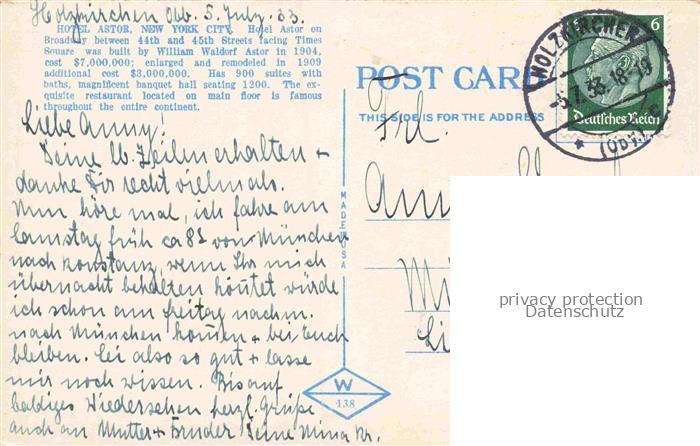 Holzkirchen Obb. 5. July. 33.
HOTEL ASTOR, NEW YORK CITY. Hotel Astor on
Broadway between 44th and 45th Streets facing Times
Square was built by William Waldorf Astor in 1904,
cost $7,000,000; enlarged and remodeled in 1909
additional cost $3,000,000. Has 900 suites with
baths, magnificent banquet hall seating 1200. The ex-
quisite restaurant located on main floor is famous
throughout the entire continent.
Liebe Anny!
Deine lb. Zeilen erhalten +
danke Dir recht vielmals.
Nun höre mal, ich fahre am
Samstag früh ca 8 von München
nach Konstanz, wenn Ihr mich
übernacht behalten könntet würde
ich schon am Freitag nachm.
nach München kommen + bei Euch
bleiben. Sei also so gut + lasse
mir noch wissen. Bis auf
baldiges Wiedersehen herzl. Grüße
auch an Mutter + Bruder Deine Mina Kr.
POST CARD
THIS SIDE IS FOR THE ADDRESS
Frl.
MADE USA
W
438
HOLZKIRCHEN
-5.7.33.18-19
(Oby.)
6
Deutsches Reich
privacy protection
Datenschutz